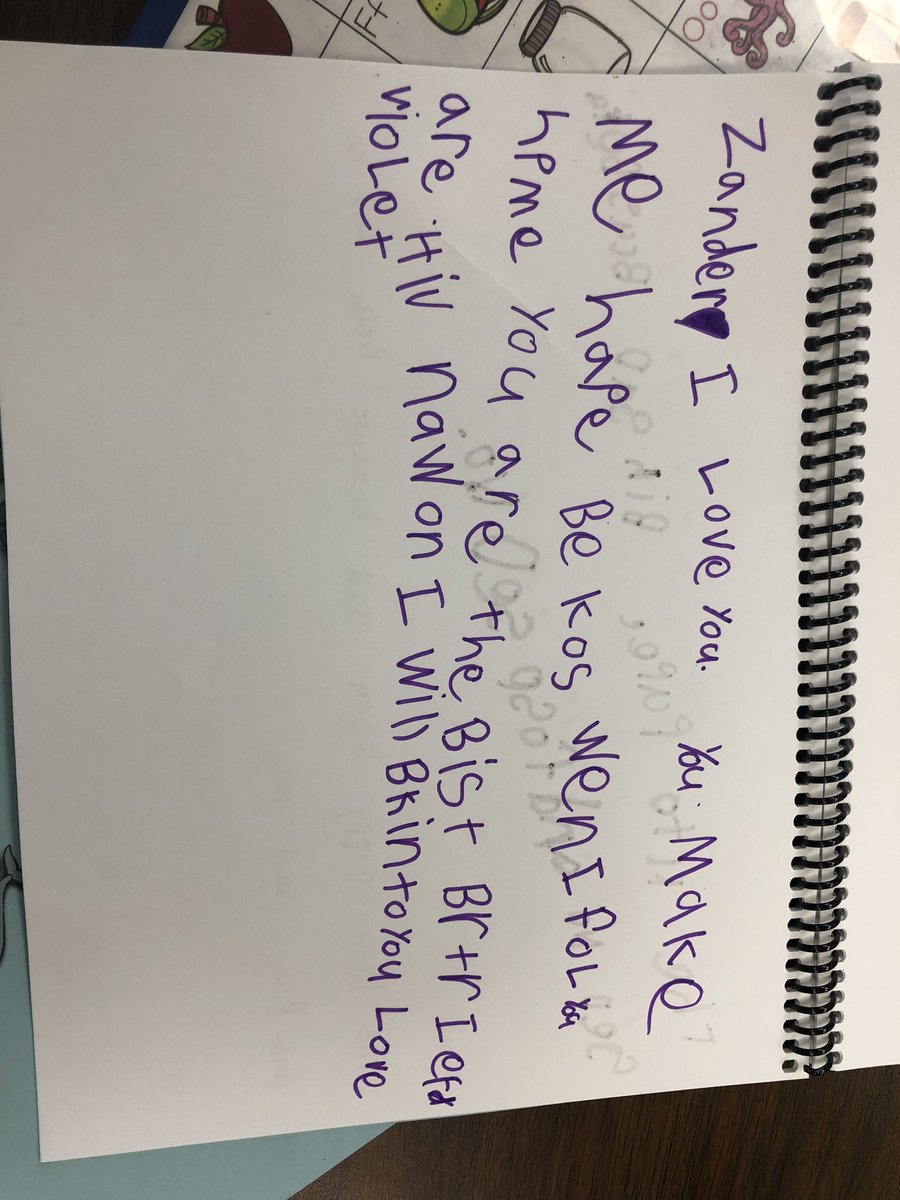 Zander♥ I Love you. You Make
Me hape Be kos wen I fol you
hpme you are the Bist Brtr I efr
are Hiv naw on I will B kin to you Love
violet